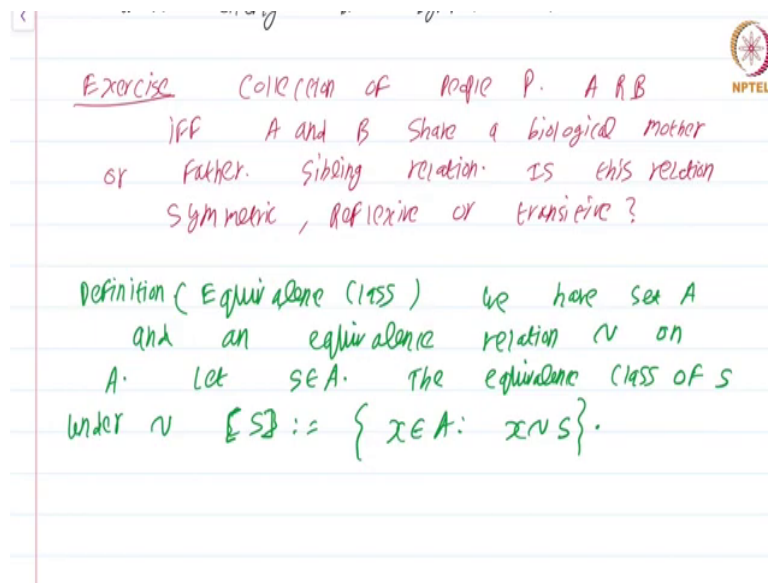 NPTEL
Exercise Collection of People P. A R B
iff A and B share a biological mother
or Father. Sibling relation. Is this relation
Symmetric, Reflexive or transitive?
Definition (Equivalene Class) We have set A
and an equivalence relation ~ on
A. Let S∈A. The equivalence class of S
under ~ [S] := { x∈A: x~S}.